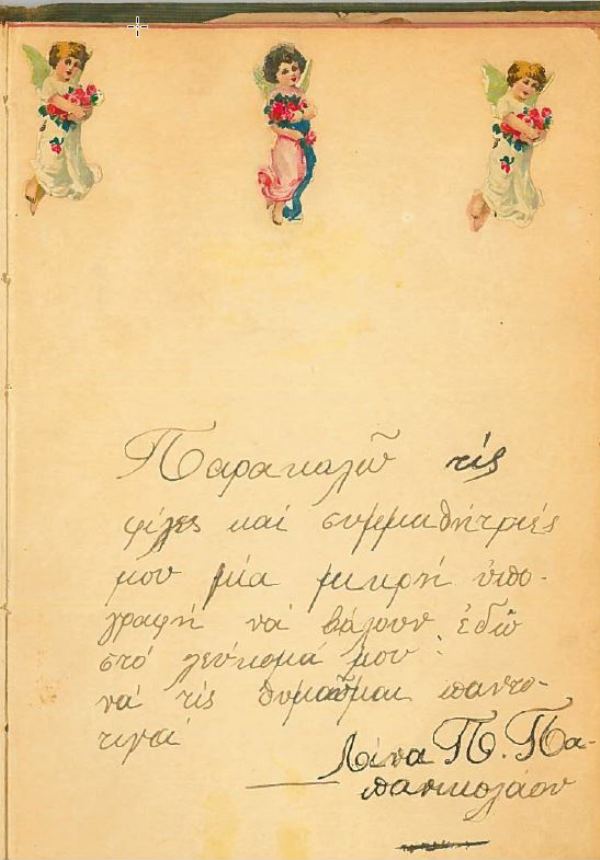 Παρακαλῶ τίς
φίλες καί συμμαθήτριές
μου μία μικρή ὑπο-
γραφή νά βάλουν ἐδῶ
στό λεύκωμά μου :
νά τίς θυμᾶμαι παντο-
τινά
Λίνα Π. Πα-
πανικολάου